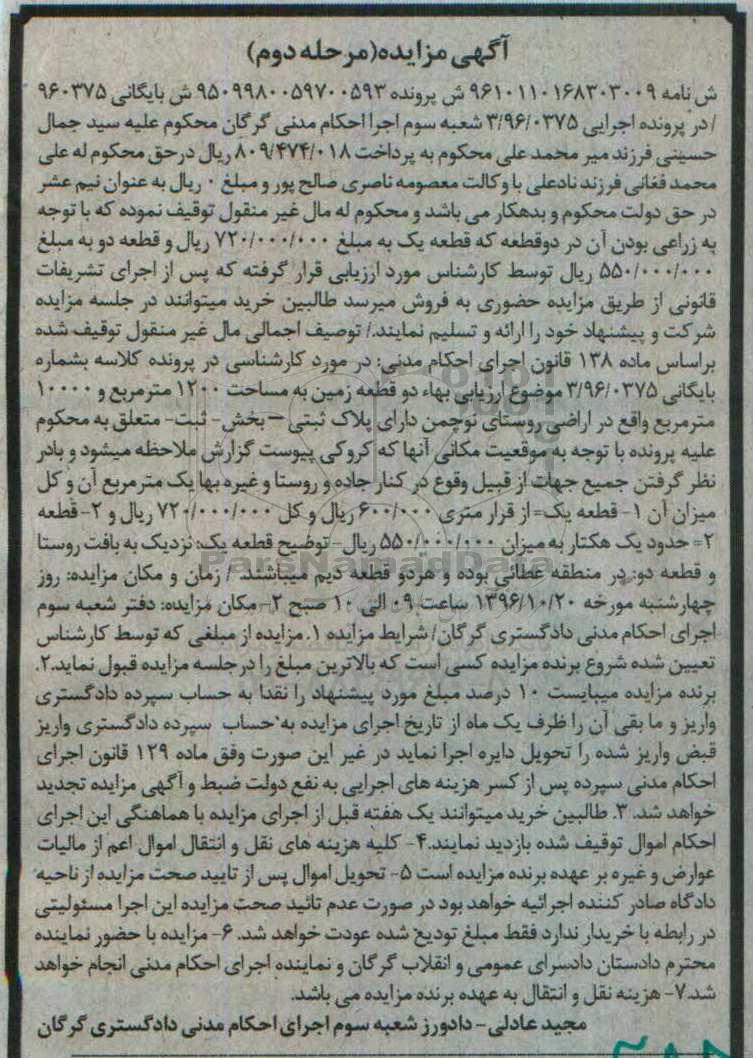 آگهی مزایده(مرحله دوم)
ش نامه ۹۶۱۰۱۱۰۱۶۸۳۰۳۰۰۹ ش پرونده ۹۵۰۹۹۸۰۰۵۹۷۰۰۵۹۳ ش بایگانی ۹۶۰۳۷۵
/ در پرونده اجرایی ۳/۹۶/۰۳۷۵ شعبه سوم اجرا احکام مدنی گرگان محکوم علیه سید جمال
حسینی فرزند میر محمد علی محکوم به پرداخت ۸۰۹/۴۷۴/۰۱۸ ریال درحق محکوم له علی
محمد فغانی فرزند نادعلی با وکالت معصومه ناصری صالح پور و مبلغ ۰ ریال به عنوان نیم عشر
در حق دولت محکوم و بدهکار می باشد و محکوم له مال غیر منقول توقیف نموده که با توجه
به زراعی بودن آن در دوقطعه که قطعه یک به مبلغ ۷۲۰/۰۰۰/۰۰۰ ریال و قطعه دو به مبلغ
۵۵۰/۰۰۰/۰۰۰ ریال توسط کارشناس مورد ارزیابی قرار گرفته که پس از اجرای تشریفات
قانونی از طریق مزایده حضوری به فروش میرسد طالبین خرید میتوانند در جلسه مزایده
شرکت و پیشنهاد خود را ارائه و تسلیم نمایند./ توصیف اجمالی مال غیر منقول توقیف شده
براساس ماده ۱۳۸ قانون اجرای احکام مدنی: در مورد کارشناسی در پرونده کلاسه بشماره
بایگانی ۳/۹۶/۰۳۷۵ موضوع ارزیابی بهاء دو قطعه زمین به مساحت ۱۲۰۰ مترمربع و ۱۰۰۰۰
مترمربع واقع در اراضی روستای نوچمن دارای پلاک ثبتی – بخش- ثبت- متعلق به محکوم
علیه پرونده با توجه به موقعیت مکانی آنها که کروکی پیوست گزارش ملاحظه میشود و بادر
نظر گرفتن جمیع جهات از قبیل وقوع در کنار جاده و روستا و غیره بها یک مترمربع آن و کل
میزان آن ۱- قطعه یک= از قرار متری ۶۰۰/۰۰۰ ریال و کل ۷۲۰/۰۰۰/۰۰۰ ریال و ۲- قطعه
۲= حدود یک هکتار به میزان ۵۵۰/۰۰۰/۰۰۰ ریال- توضیح قطعه یک: نزدیک به بافت روستا
و قطعه دو: در منطقه عطائی بوده و هردو قطعه دیم میباشند. / زمان و مکان مزایده: روز
چهارشنبه مورخه ۱۳۹۶/۱۰/۲۰ ساعت ۰۹ الی ۱۰ صبح ۲- مکان مزایده: دفتر شعبه سوم
اجرای احکام مدنی دادگستری گرگان/ شرایط مزایده ۱. مزایده از مبلغی که توسط کارشناس
تعیین شده شروع برنده مزایده کسی است که بالاترین مبلغ را درجلسه مزایده قبول نماید.۲.
برنده مزایده میبایست ۱۰ درصد مبلغ مورد پیشنهاد را نقدا به حساب سپرده دادگستری
واریز و ما بقی آن را ظرف یک ماه از تاریخ اجرای مزایده به حساب سپرده دادگستری واریز
قبض واریز شده را تحویل دایره اجرا نماید در غیر این صورت وفق ماده ۱۲۹ قانون اجرای
احکام مدنی سپرده پس از کسر هزینه های اجرایی به نفع دولت ضبط و آگهی مزایده تجدید
خواهد شد. ۳. طالبین خرید میتوانند یک هفته قبل از اجرای مزایده با هماهنگی این اجرای
احکام اموال توقیف شده بازدید نمایند.۴- کلیه هزینه های نقل و انتقال اموال اعم از مالیات
عوارض و غیره بر عهده برنده مزایده است ۵- تحویل اموال پس از تایید صحت مزایده از ناحیه
دادگاه صادر کننده اجرائیه خواهد بود در صورت عدم تائید صحت مزایده این اجرا مسئولیتی
در رابطه با خریدار ندارد فقط مبلغ تودیع شده عودت خواهد شد. ۶- مزایده با حضور نماینده
محترم دادستان دادسرای عمومی و انقلاب گرگان و نماینده اجرای احکام مدنی انجام خواهد
شد.۷- هزینه نقل و انتقال به عهده برنده مزایده می باشد.
مجید عادلی- دادورز شعبه سوم اجرای احکام مدنی دادگستری گرگان
ParsNamadData